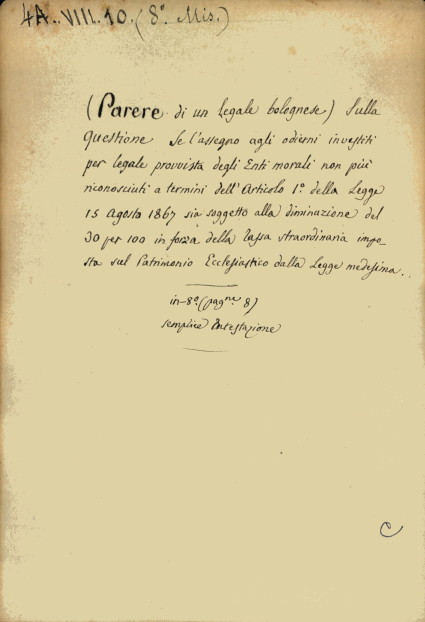 4A. VIII. 10. (8º Mis.)
(Parere di un legale bolognese) Sulla
questione Se l'assegno agli odierni investiti
per legale provvista degli Enti morali non più
riconosciuti a termini dell'Articolo 1º della Legge
15 Agosto 1867 sia soggetto alla diminuzione del
30 per 100 in forza della tassa straordinaria impo-
sta sul Patrimonio Ecclesiastico dalla Legge medesima.
in-8º (pagne 8)
semplice intestazione
C